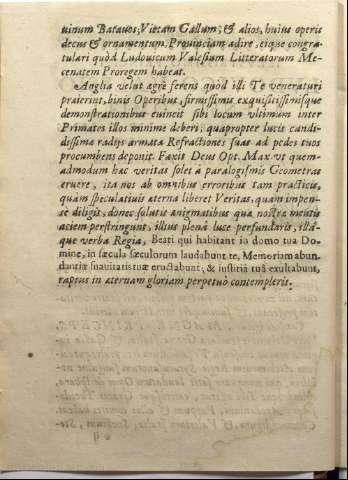 uinum Batauos; Vietam Gallum; & alios, huius operis
decus & ornamentum. Prouinciam adire, eique congra-
tulari quòd Ludouicum Valesium Litteratorum Me-
cenatem Proregem habeat.
Anglia velut ægrè ferens quod illi Te veneraturi
præierint, binis Operibus, firmissimis exquisitissimisque
demonstrationibus euincit sibi locum vltimum inter
Primates illos minime deberi; quapropter lucis candi-
dissimæ radijs armata Refractiones suas ad pedes tuos
procumbens deponit. Faxit Deus Opt. Max vt quem-
admodum hac veritas solet à paralogismis Geometras
eruere, ita nos ab omnibus erroribus tam practicis,
quam speculatiuis æterna liberet Veritas, quam impen-
se diligis, donec solutis ænigmatibus qua nostræ mentis
aciem perstringunt, illius plenâ luce perfundaris, illá-
que verba Regia, Beati qui habitant in domo tua Do-
mine, in sæcula sæculorum laudabunt te, Memoriam abun-
dantiæ suauitatis tuæ eructabunt, & iustitiâ tuâ exultabunt,
raptus in æternam gloriam perpetuò contempleris.